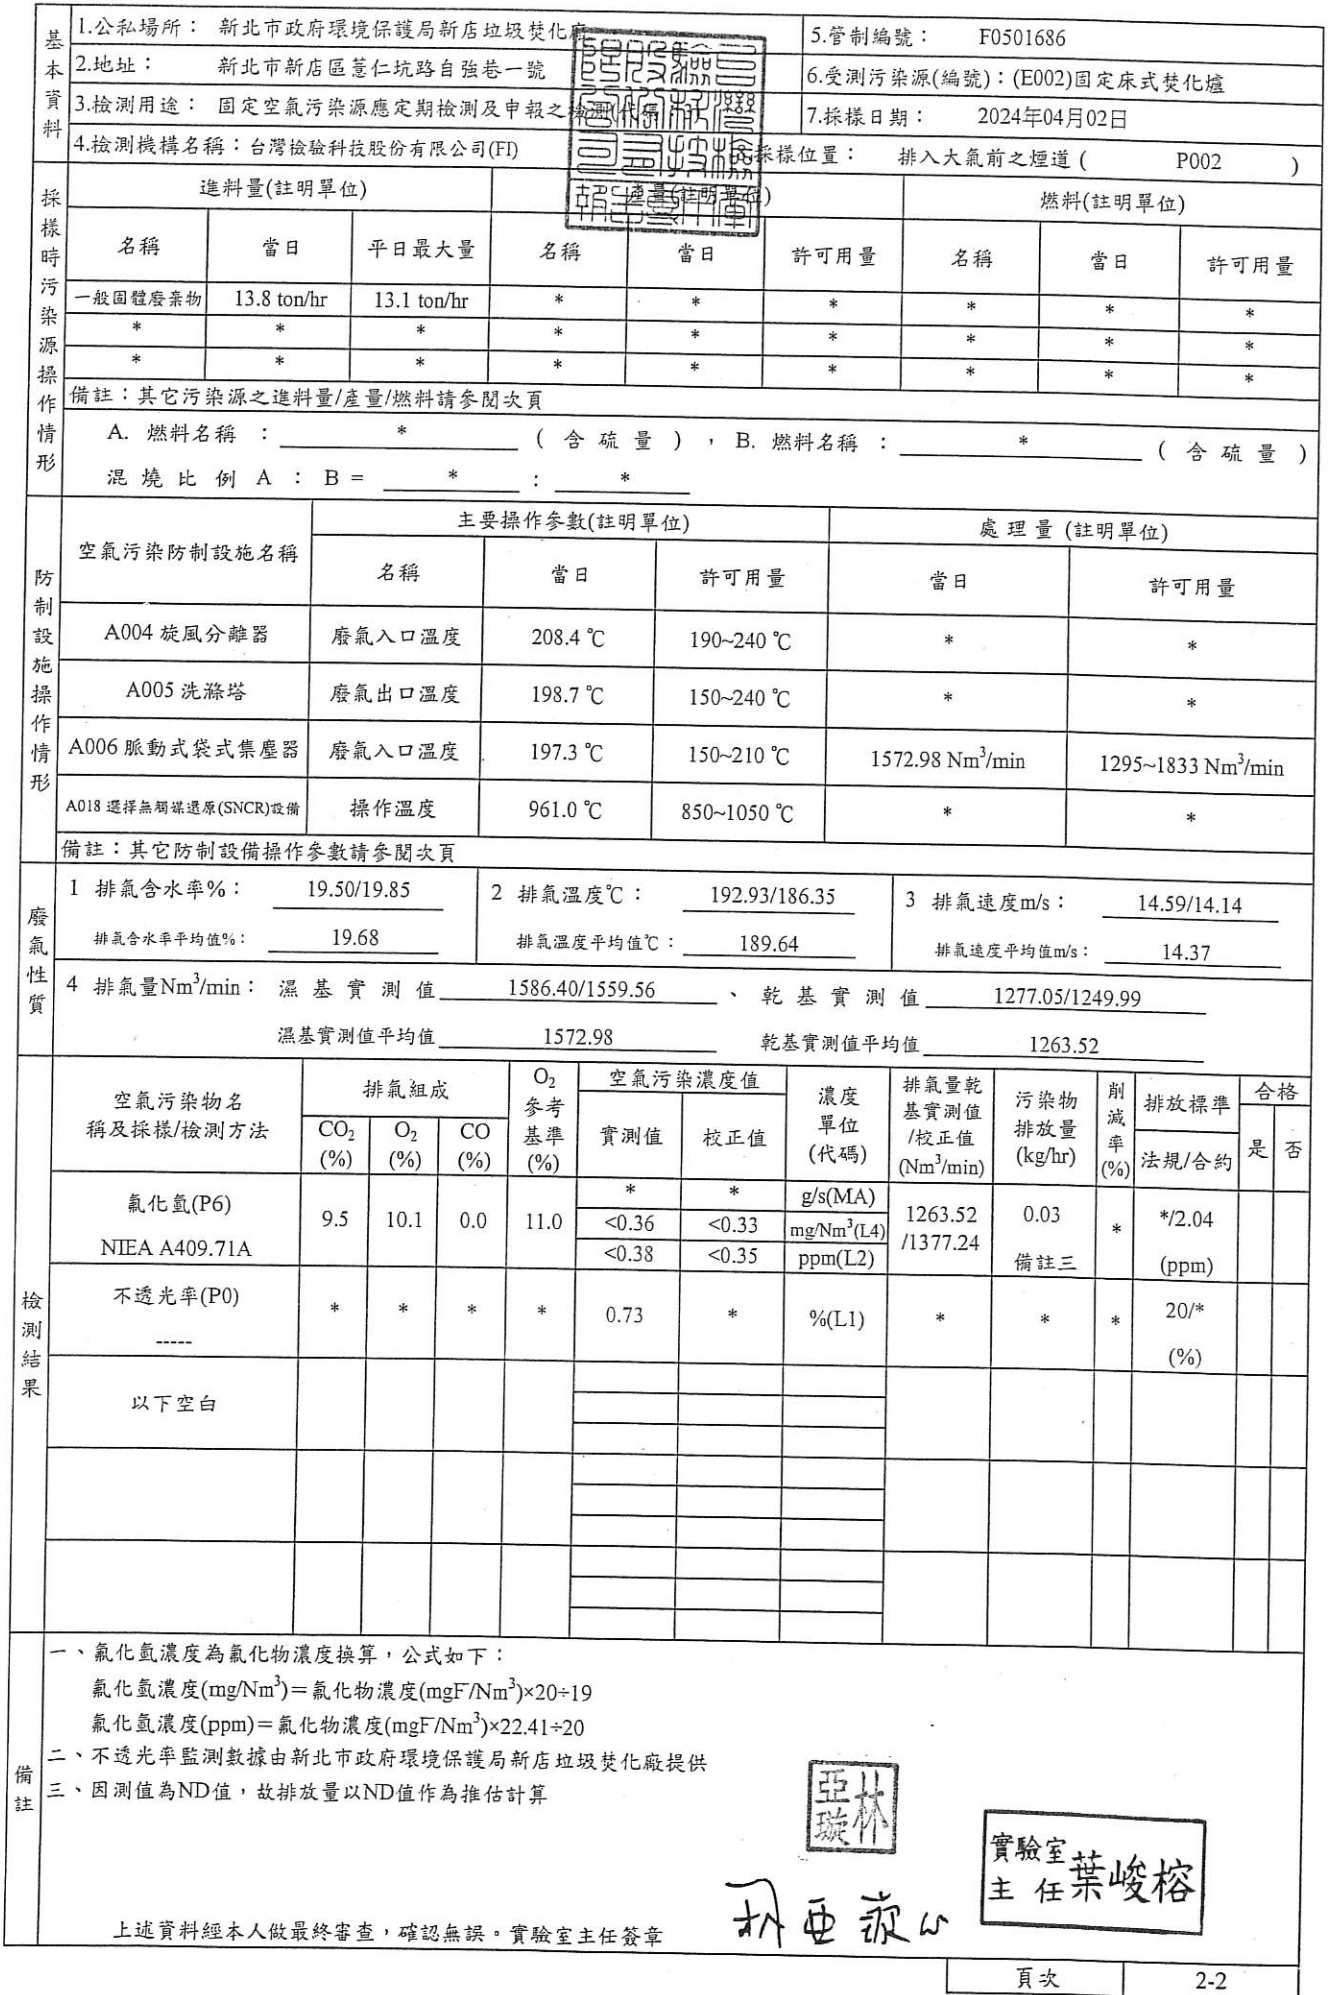 基本資料
1.公私場所： 新北市政府環境保護局新店垃圾焚化廠
5.管制編號： F0501686
2.地址： 新北市新店區薏仁坑路自強巷一號
6.受測污染源(編號)：(E002)固定床式焚化爐
3.檢測用途： 固定空氣污染源應定期檢測及申報之檢測
7.採樣日期： 2024年04月02日
4.檢測機構名稱：台灣檢驗科技股份有限公司(FI)
採樣位置： 排入大氣前之煙道 ( P002 )
採樣時污染源操作情形
進料量(註明單位) 產量(註明單位) 燃料(註明單位)
名稱 當日 平日最大量 名稱 當日 許可用量 名稱 當日 許可用量
一般固體廢棄物 13.8 ton/hr 13.1 ton/hr * * * * * *
* * * * * * * * *
* * * * * * * * *
備註：其它污染源之進料量/產量/燃料請參閱次頁
A. 燃料名稱 ： * ( 含 硫 量 ) ， B. 燃料名稱 ： * ( 含 硫 量 )
混 燒 比 例 A ： B = * ： *
防制設施操作情形
空氣污染防制設施名稱 主要操作參數(註明單位) 處理量 (註明單位)
名稱 當日 許可用量 當日 許可用量
A004 旋風分離器 廢氣入口溫度 208.4 ℃ 190~240 ℃ * *
A005 洗滌塔 廢氣出口溫度 198.7 ℃ 150~240 ℃ * *
A006 脈動式袋式集塵器 廢氣入口溫度 197.3 ℃ 150~210 ℃ 1572.98 Nm³/min 1295~1833 Nm³/min
A018 選擇無觸媒還原(SNCR)設備 操作溫度 961.0 ℃ 850~1050 ℃ * *
備註：其它防制設備操作參數請參閱次頁
廢氣性質
1 排氣含水率%： 19.50/19.85 2 排氣溫度℃： 192.93/186.35 3 排氣速度m/s： 14.59/14.14
排氣含水率平均值%： 19.68 排氣溫度平均值℃： 189.64 排氣速度平均值m/s： 14.37
4 排氣量Nm³/min： 濕 基 實 測 值 1586.40/1559.56 、 乾 基 實 測 值 1277.05/1249.99
濕基實測值平均值 1572.98 乾基實測值平均值 1263.52
檢測結果
空氣污染物名稱及採樣/檢測方法 排氣組成 O₂參考基準(%) 空氣污染濃度值 濃度單位(代碼) 排氣量乾基實測值/校正值(Nm³/min) 污染物排放量(kg/hr) 削減率(%) 排放標準 合格
CO₂(%) O₂(%) CO(%) 實測值 校正值 法規/合約 是 否
氟化氫(P6) NIEA A409.71A 9.5 10.1 0.0 11.0 1263.52/1377.24 0.03 備註三 * */2.04 (ppm)
* * g/s(MA)
<0.36 <0.33 mg/Nm³(L4)
<0.38 <0.35 ppm(L2)
不透光率(P0) ----- * * * * 0.73 * %(L1) * * * 20/* (%)
以下空白
備註
一、氟化氫濃度為氟化物濃度換算，公式如下：
氟化氫濃度(mg/Nm³)＝氟化物濃度(mgF⁻/Nm³)×20÷19
氟化氫濃度(ppm)＝氟化物濃度(mgF⁻/Nm³)×22.41÷20
二、不透光率監測數據由新北市政府環境保護局新店垃圾焚化廠提供
三、因測值為ND值，故排放量以ND值作為推估計算
林亞璇
實驗室主任 葉峻榕
上述資料經本人做最終審查，確認無誤。實驗室主任簽章
林亞璇
頁次 2-2